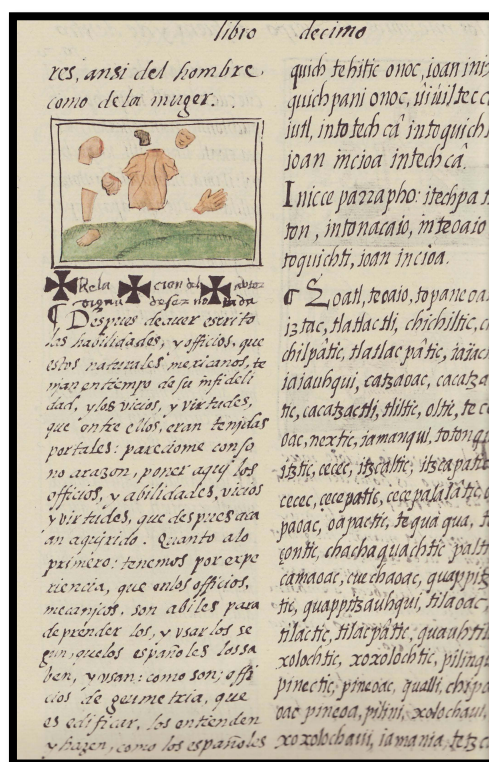 libro decimo
res, ansi del hombre,
como dela muger.
Rela cion del autor
digna de ser notada
¶ Despues deauer escrito
las habilidades, y officios, que
estos naturales mexicanos, te
nian entiempo de su infideli
dad, y los vicios, y virtudes,
que entre ellos, eran tenidas
portales: pareciome conso
no arazon, poner aquj los
officios, y abilidades, vicios
y virtudes, que despues aca
an aqujrido. Quanto alo
primero: tenemos por expe
riencia, que enlos officios,
mecanjcos, son abiles para
deprender los, y vsar los se
gun, quelos españoles lossa
ben, y vsan: como son; offi
cios de geumetria, que
es edificar, los entienden
y hazen, como los españoles
quich tehitic onoc, ioan
quich pani onoc,
iutl, intotech câ intoquich
ioan incioa intech câ.
Inicce parrapho: itechpa
ton, intonacaio, inteoaio
toquichti, ioan incioa.
¶ Eoatl, teoaio, topaneoa
iztac, tlatlactli, chichiltic,
chilpâtic, tlatlac pâtic,
iaiauhqui, catzaoac, cacatza
tic, cacatzactli, tliltic, oltic,
oac, nextic, iamanqui, totonq
itztic, cecec, itzcaltic, itzcapatic
cecec, cecepatic, cecepalalatic
paoac, oapactic, tequaqua,
çontic, chachaquachtic
camaoac, cuechaoac, quappitz
tic, quappitzauhqui, tilaoac,
tilactic, tilacpâtic, quauhtil
xolochtic, xoxolochtic,
pinectic, pineoac, qualli,
oac pineoa, pilini, xolochaui,
xoxolochaui, iamania,